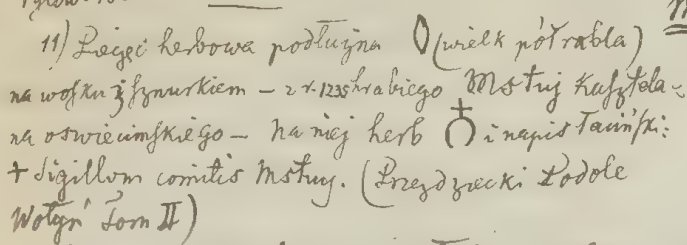 11) Pieczęć herbowa podłużna (wielk półrabla)
na wosku z sznurkiem – z r. 1235 hrabiego Mstuj Kasztela-
na oswiecimskiego – na niej herb i napis łaciński:
+ Sigillum comitis Mstuy. (Przezdziecki Podole
Wołyń Tom II)